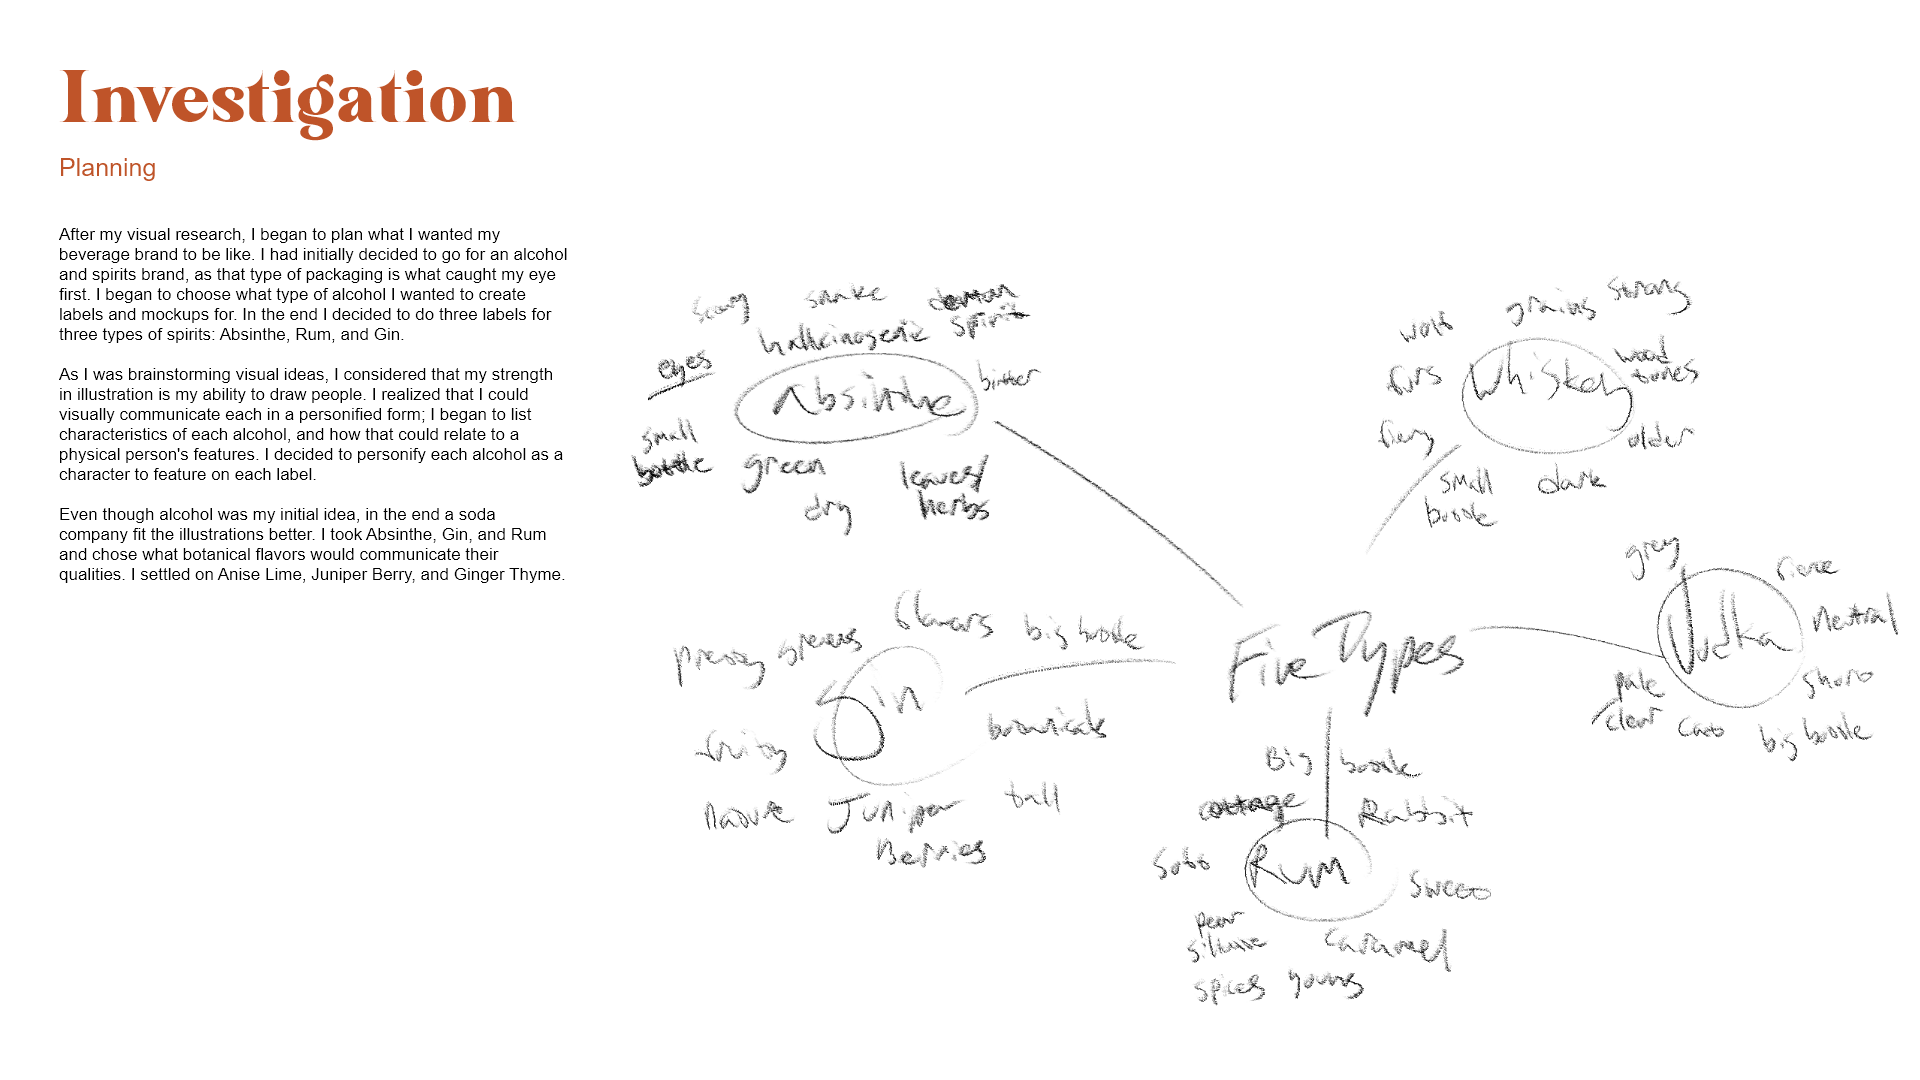 Investigation
Planning
After my visual research, I began to plan what I wanted my
beverage brand to be like. I had initially decided to go for an alcohol
and spirits brand, as that type of packaging is what caught my eye
first. I began to choose what type of alcohol I wanted to create
labels and mockups for. In the end I decided to do three labels for
three types of spirits: Absinthe, Rum, and Gin.
As I was brainstorming visual ideas, I considered that my strength
in illustration is my ability to draw people. I realized that I could
visually communicate each in a personified form; I began to list
characteristics of each alcohol, and how that could relate to a
physical person's features. I decided to personify each alcohol as a
character to feature on each label.
Even though alcohol was my initial idea, in the end a soda
company fit the illustrations better. I took Absinthe, Gin, and Rum
and chose what botanical flavors would communicate their
qualities. I settled on Anise Lime, Juniper Berry, and Ginger Thyme.
Five Types
Absinthe
scary
snake
demon
spirit
hallucinogenic
eyes
bitter
small
bottle
green
dry
leaves/
herbs
Whiskey
wolf
grains
strong
furs
wood
tones
fiery
older
small
bottle
dark
Vodka
grey
fierce
neutral
pale
/clear
sharp
big bottle
Gin
flavors
big bottle
greens
botanicals
fruity
tall
Juniper
Berries
Rum
Big bottle
cottage
Rabbit
sweet
pear
caramel
spices
young